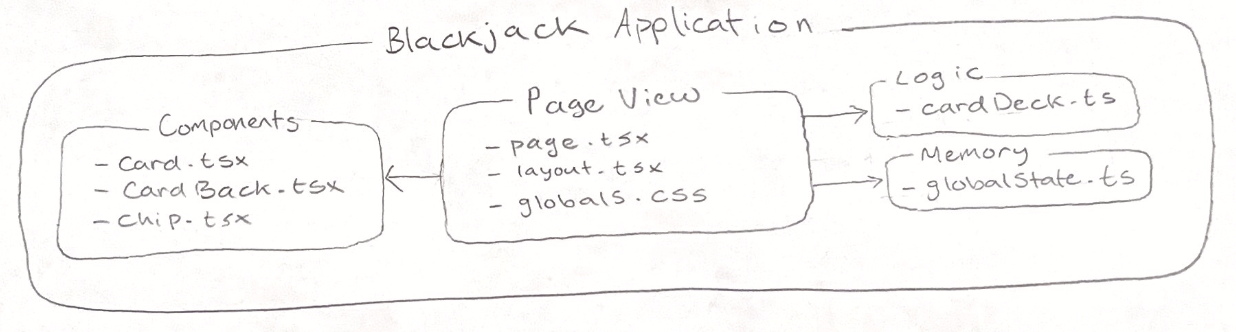 Blackjack Application
Components
- Card.tsx
- CardBack.tsx
- Chip.tsx
Page View
- page.tsx
- layout.tsx
- globals.css
Logic
- cardDeck.ts
Memory
- globalState.ts